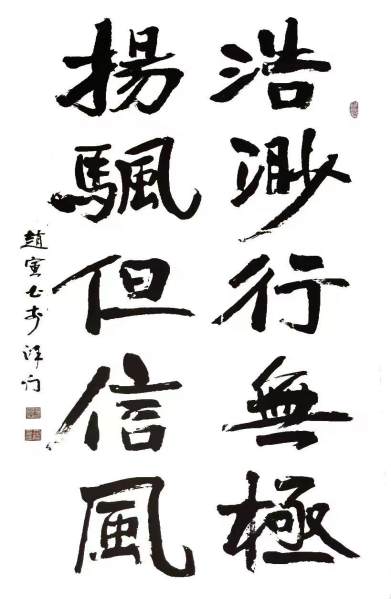 浩渺行無極
揚颿但信風
趙寅